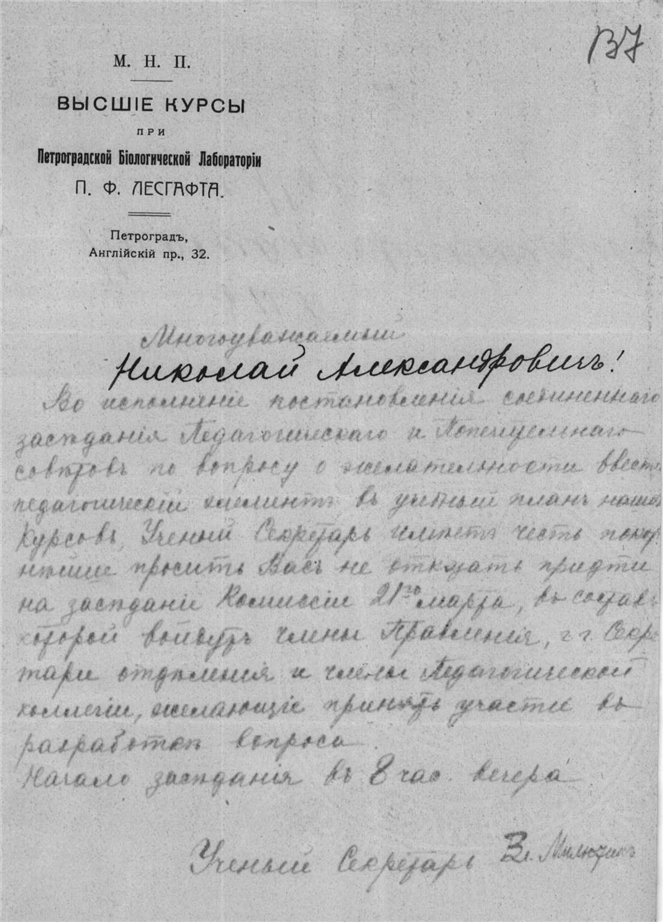 137
М. Н. П.
ВЫСШІЕ КУРСЫ
ПРИ
Петроградской Біологической Лабораторіи
П. Ф. ЛЕСГАФТА.
Петроградъ,
Англійскій пр., 32.
Многоуважаемый
Николай Александровичъ!
Во исполненіе постановленія соединеннаго
засѣданія Педагогическаго и Попечительнаго
совѣтовъ по вопросу о желательности ввести
педагогическій элементъ въ учебный планъ нашихъ
Курсовъ, Ученый Секретарь имѣетъ честь покор
нѣйше просить Васъ не отказать придти
на засѣданіе Комиссіи 21го марта, въ составъ
которой войдутъ члены Правленія, г.г. Секре
тари отдѣленія и члены Педагогической
коллегіи, желающіе принять участіе въ
разработкѣ вопроса.
Начало засѣданія въ 8 час. вечера
Ученый Секретарь